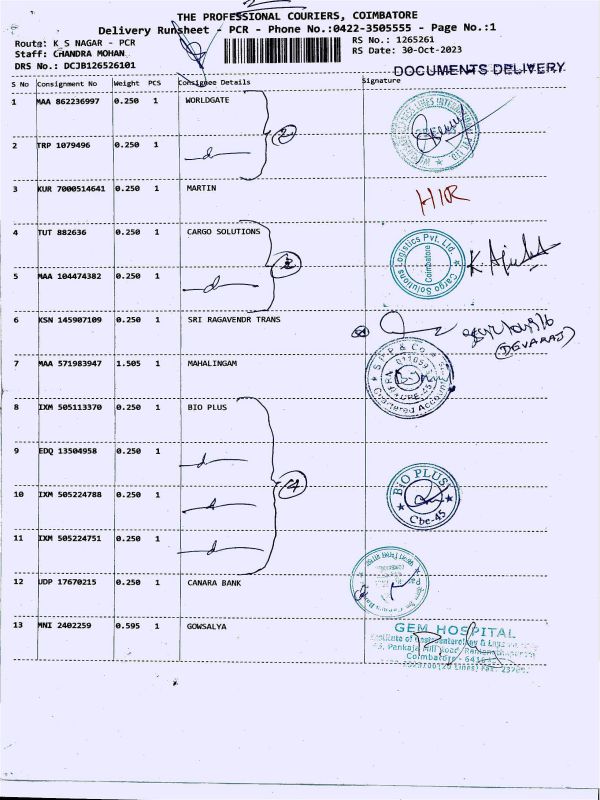 THE PROFESSIONAL COURIERS, COIMBATORE
Delivery Runsheet - PCR - Phone No.:0422-3505555 - Page No.:1
Route: K S NAGAR - PCR
RS No.: 1265261
Staff: CHANDRA MOHAN
RS Date: 30-Oct-2023
DRS No.: DCJB126526101
DOCUMENTS DELIVERY
S No Consignment No Weight PCS Consignee Details Signature
1 MAA 862236997 0.250 1 WORLDGATE
2 TRP 1079496 0.250 1
2
3 KUR 7000514641 0.250 1 MARTIN
4 TUT 882636 0.250 1 CARGO SOLUTIONS
Cargo Solutions Logistics Pvt. Ltd.
Coimbatore
5 MAA 104474382 0.250 1
6 KSN 145907109 0.250 1 SRI RAGAVENDR TRANS
(DEVARAJ)
7 MAA 571983947 1.505 1 MAHALINGAM
8 IXM 505113370 0.250 1 BIO PLUS
9 EDQ 13504958 0.250 1
4
10 IXM 505224788 0.250 1
BIO PLUS
Cbe-45
11 IXM 505224751 0.250 1
12 UDP 17670215 0.250 1 CANARA BANK
13 MNI 2402259 0.595 1 GOWSALYA
GEM HOSPITAL
Pankaja Mill Road
Coimbatore